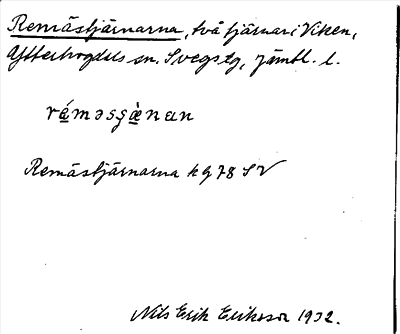 Remåstjärnarna, två tjärnar i Viken,
Ytterhogdals sn. Svegs tg, Jämtl. l.
rǻməsşæ̀nan
Remåstjärnarna k g 78 SV
Nils Erik Eriksson 1932.